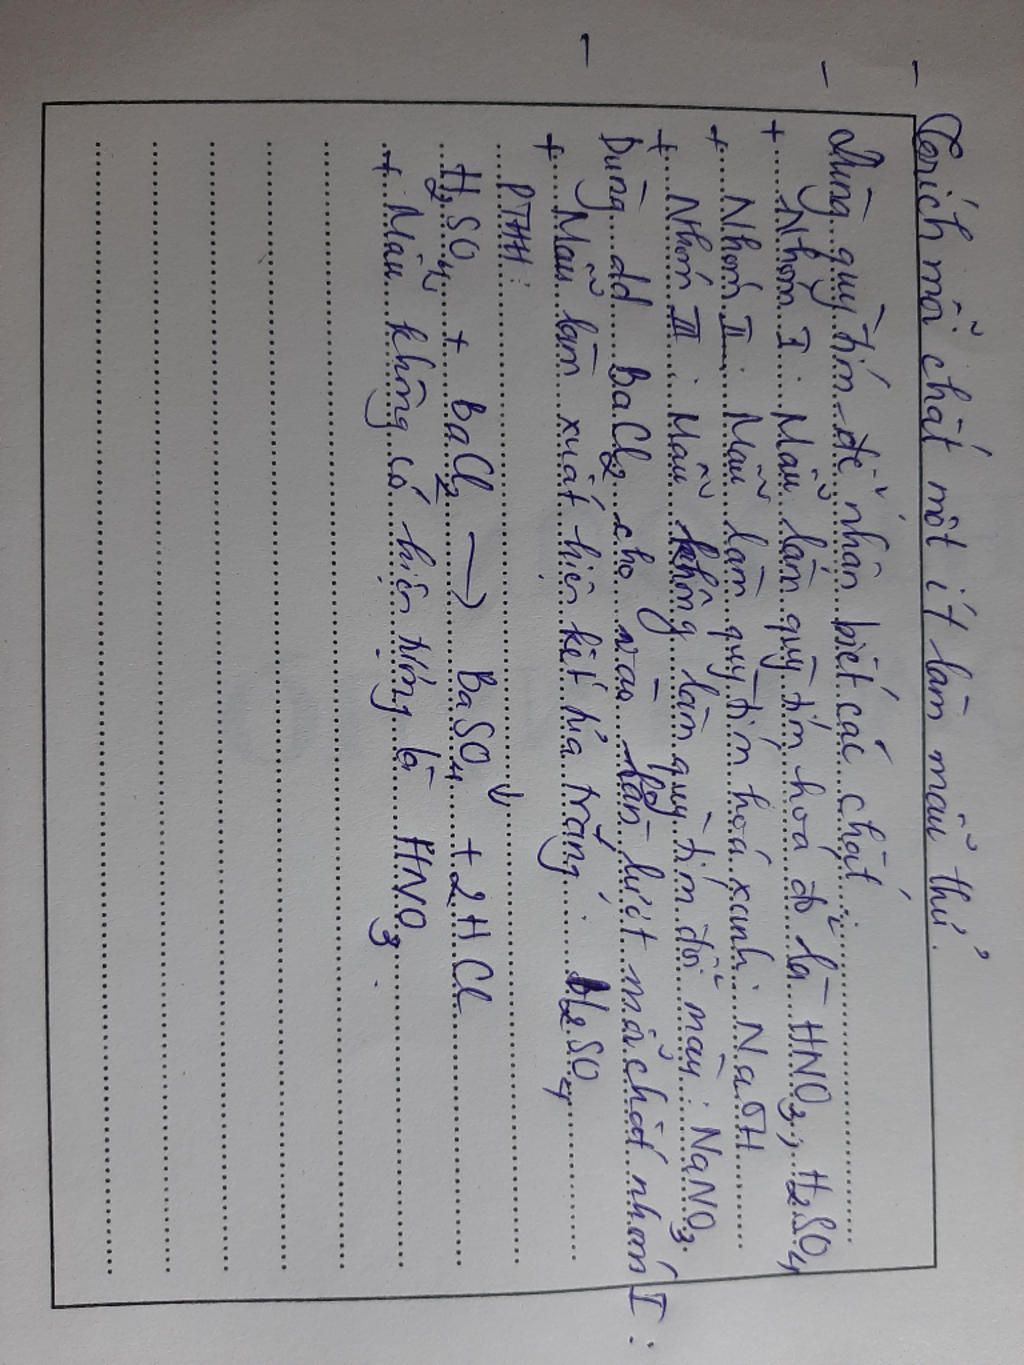 - Trích mỗi chất một ít làm mẫu thử.
- Dùng quỳ tím để nhận biết các chất:
+ Nhóm I: Mẫu làm quỳ tím hoá đỏ là HNO3, H2SO4
+ Nhóm II: Mẫu làm quỳ tím hoá xanh: NaOH
+ Nhóm III: Mẫu không làm quỳ tím đổi màu: NaNO3.
- Dùng dd BaCl2 cho vào lần lượt mỗi chất nhóm I:
+ Mẫu làm xuất hiện kết tủa trắng: H2SO4
PTHH:
H2SO4 + BaCl2 → BaSO4↓ + 2HCl
+ Mẫu không có hiện tượng là HNO3.